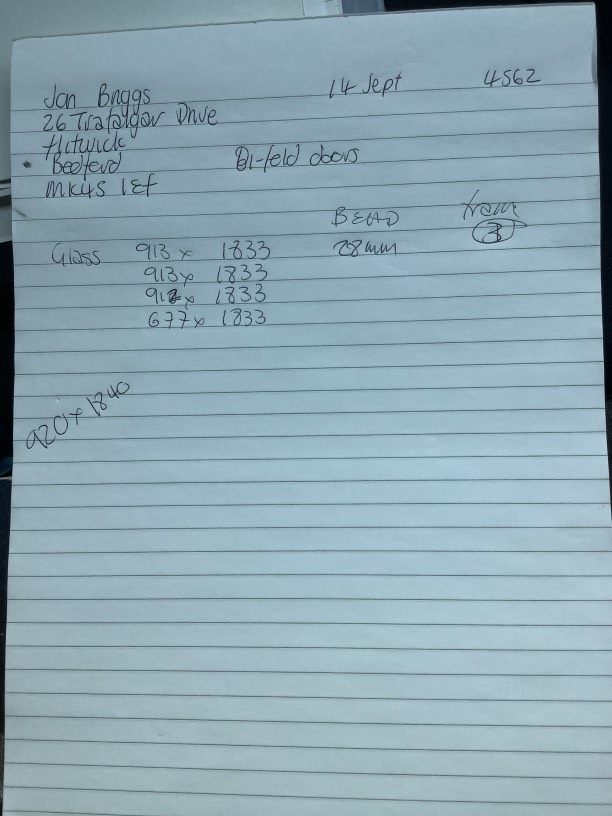 Jan Briggs 14 Sept 4562
26 Trafalgar Drive
Flitwick
Bedford Bi-fold doors
MK45 1EF
BEAD from
Glass 913 x 1833 28mm 3
913 x 1833
912 x 1833
677 x 1833
920 x 1840